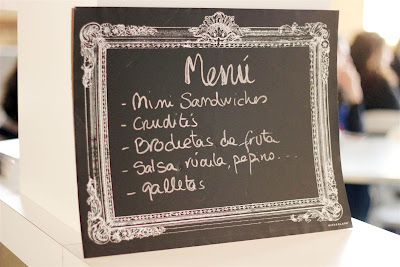 Menú
- Mini Sandwiches
- Crudités
- Brochetas de fruta
- Salsa, rúcula, pepino...
- galletas